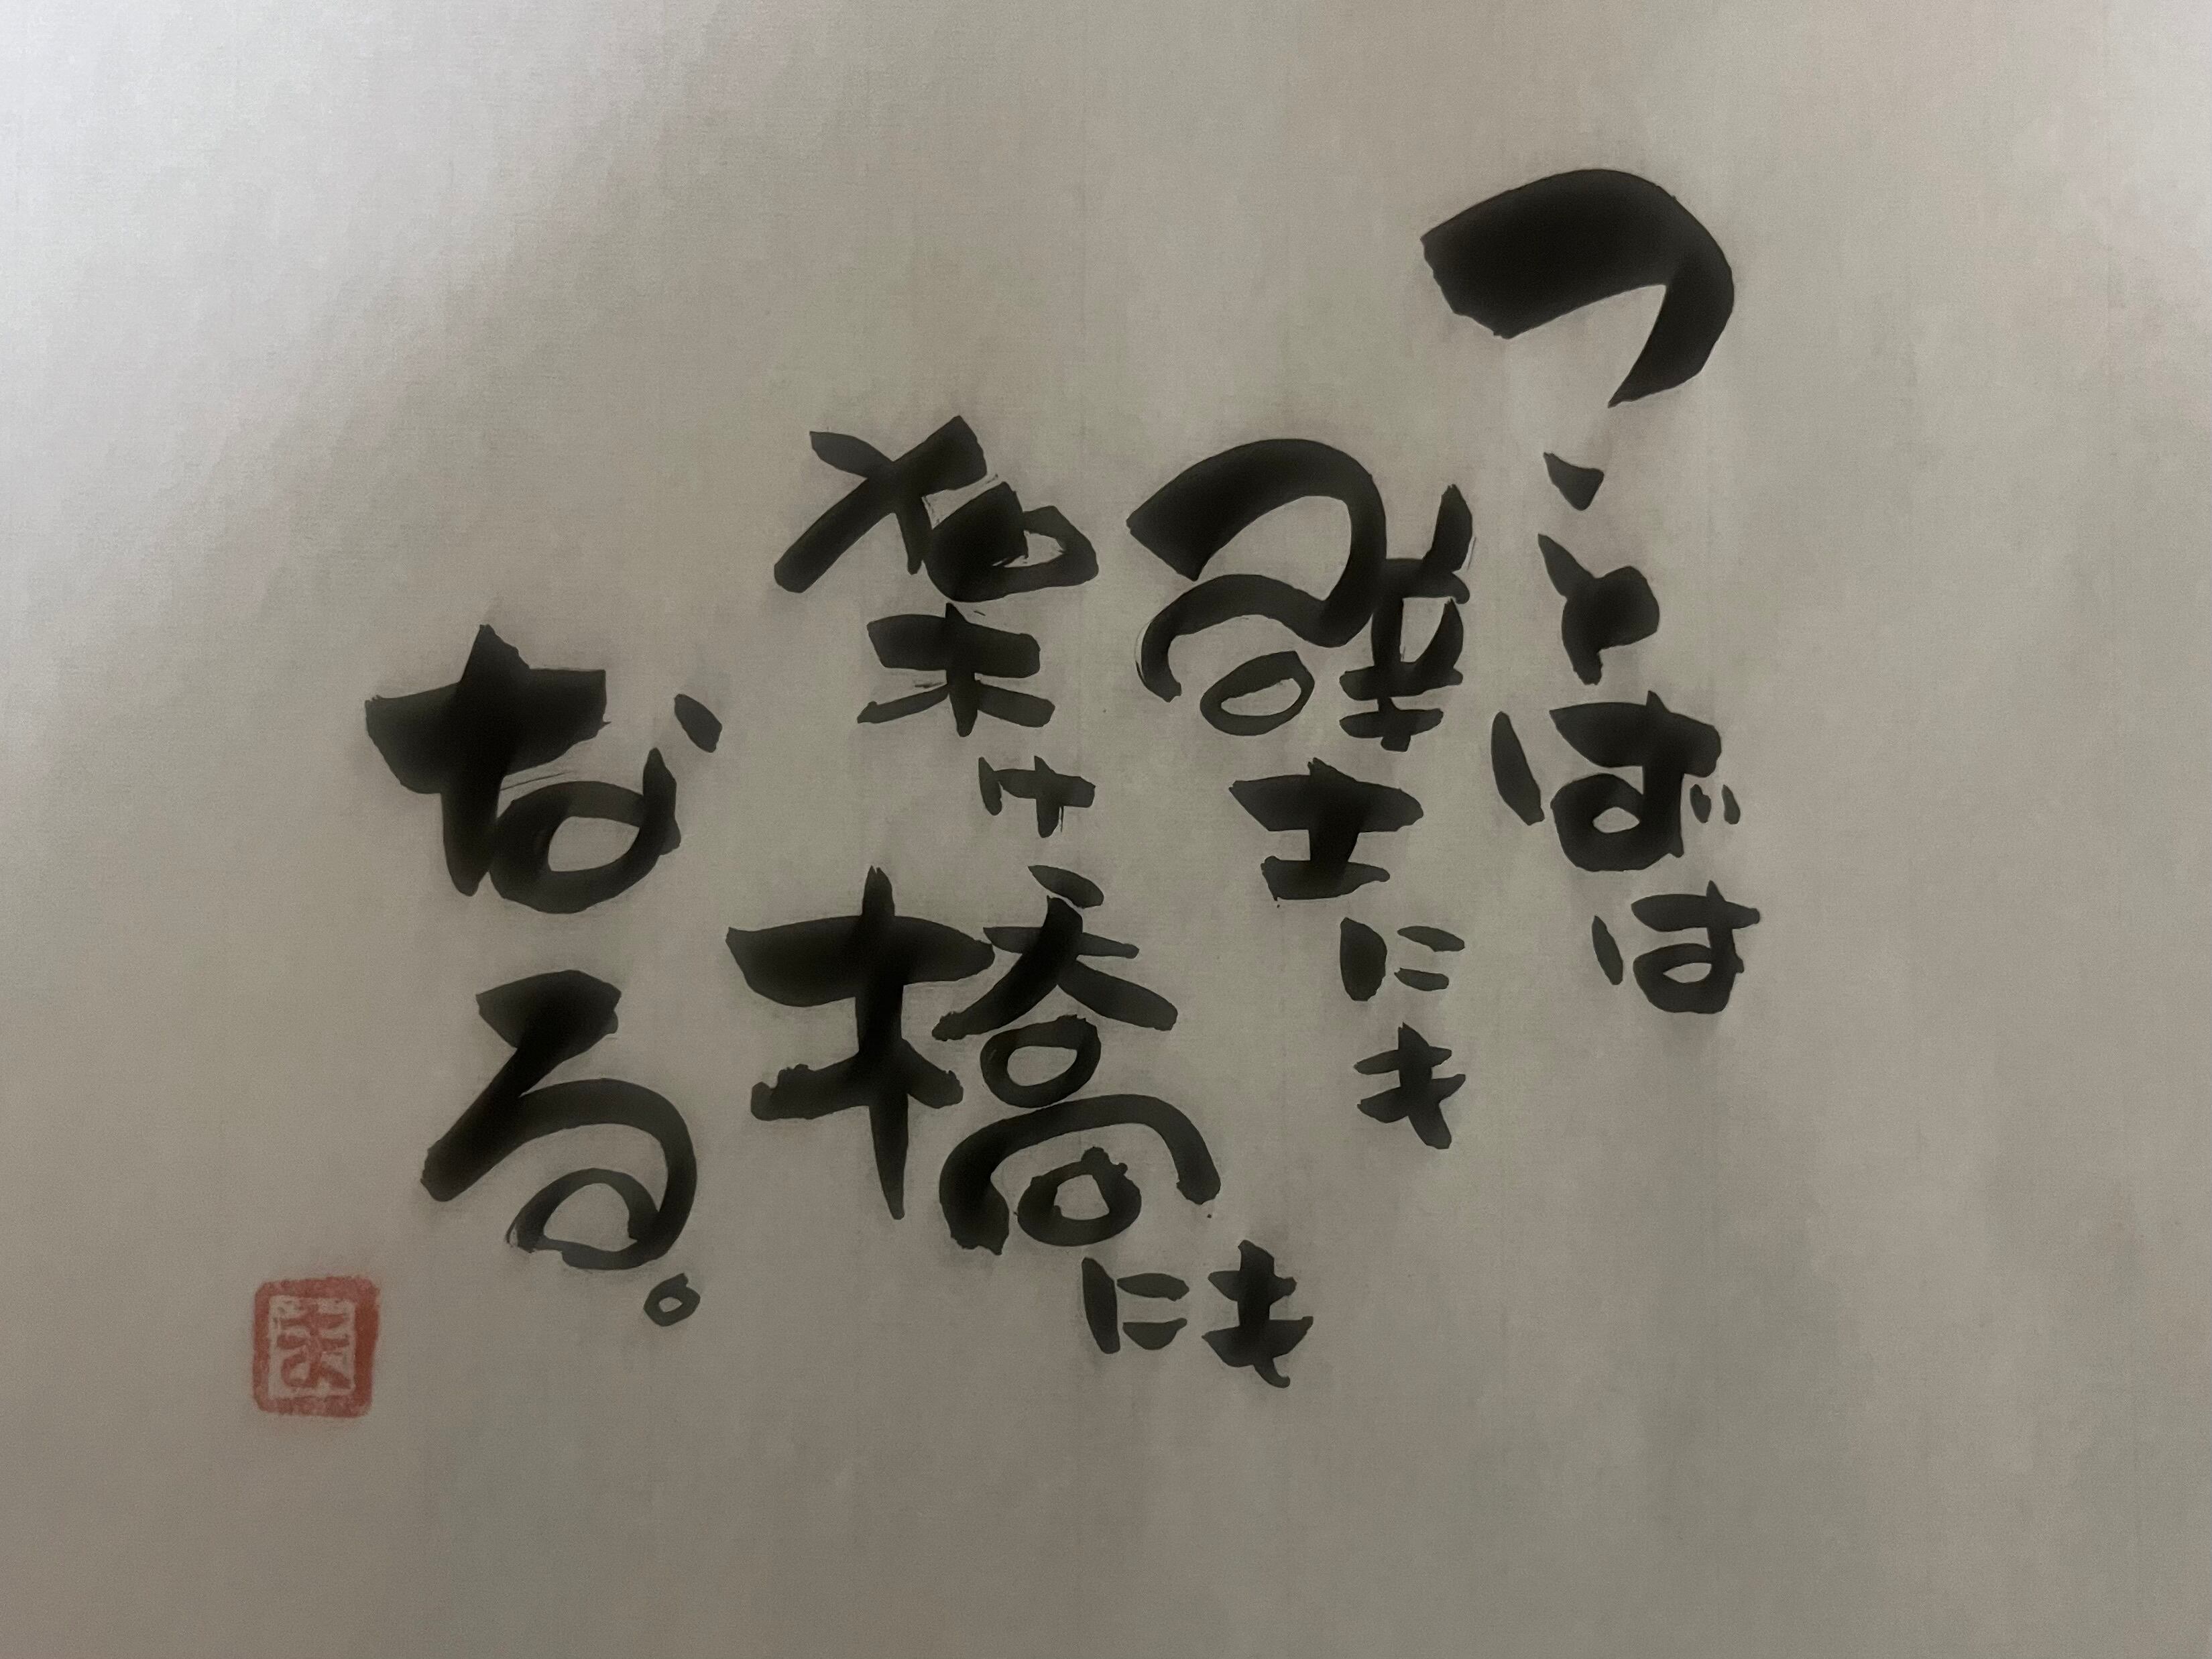 ことばは
壁にも
架け橋にも
なる。